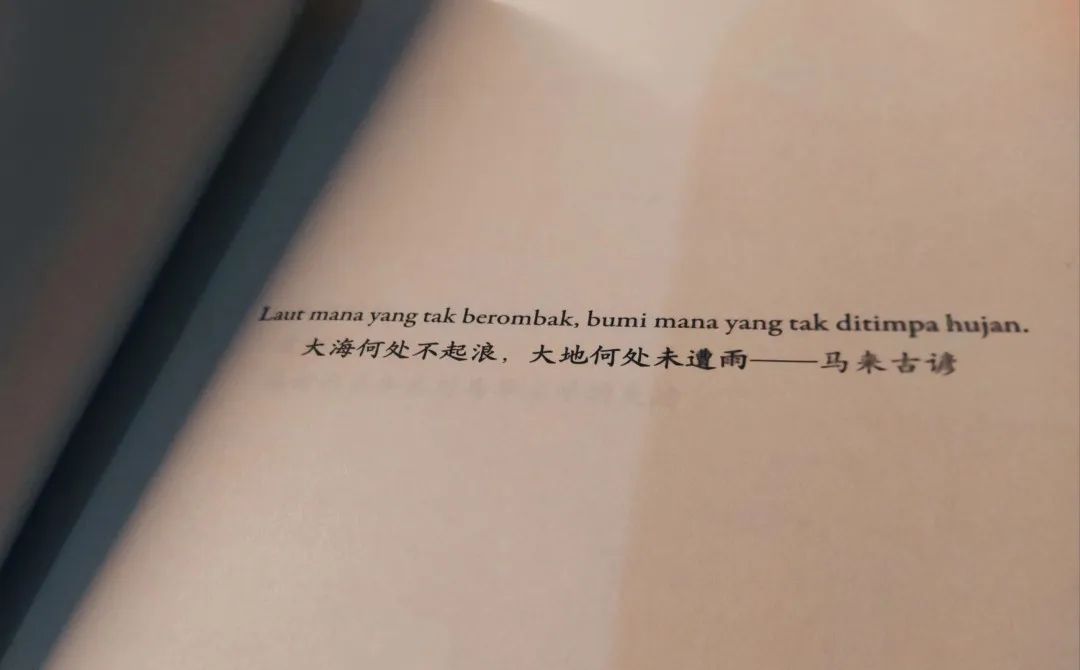 Laut mana yang tak berombak, bumi mana yang tak ditimpa hujan.
大海何处不起浪，大地何处未遭雨——马来古谚